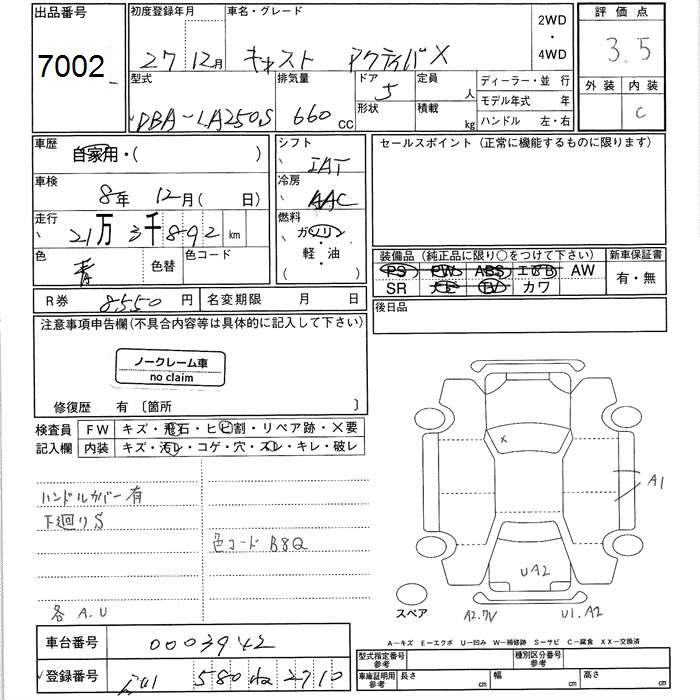 出品番号 7002
初度登録年月 27年12月
車名・グレード キャスト アクティバX
2WD・4WD
評価点 3.5
外装 内装 C
型式 DBA-LA250S
排気量 660 CC
ドア 5
形状
定員 人
積載 kg
ディーラー・並行
モデル年式 年
ハンドル 左・右
車歴 自家用・( )
車検 8年 12月( 日)
走行 21万3千892 km
色 青 色替
色コード
シフト IAT
冷房 AAC
燃料 ガソリン・軽・油
( )
セールスポイント (正常に機能するものに限ります)
装備品 (純正品に限り○をつけて下さい)
PS PW ABS エアB AW
SR ナビ TV カワ
新車保証書
有・無
R券 8550 円
名変期限 月 日
後日品
注意事項申告欄(不具合内容等は具体的に記入して下さい)
ノークレーム車
no claim
修復歴 有 〔箇所 〕
検査員記入欄
FW キズ・飛石・ヒビ割・リペア跡・×要
内装 キズ・汚レ・コゲ・穴・スレ・キレ・破レ
ハンドルカバー有
下廻りS
色コード B8Q
各 A.U
X
A1
UA2
スペア
A2.7V
U1.A2
A-キズ E-エクボ U-凹み W-補修跡 S-サビ C-腐食 XX-交換済
車台番号 0003942
登録番号 580 2710
型式指定番号 参考
種別区分番号 参考
車庫証明用 参考
長さ cm
幅 cm
高さ cm